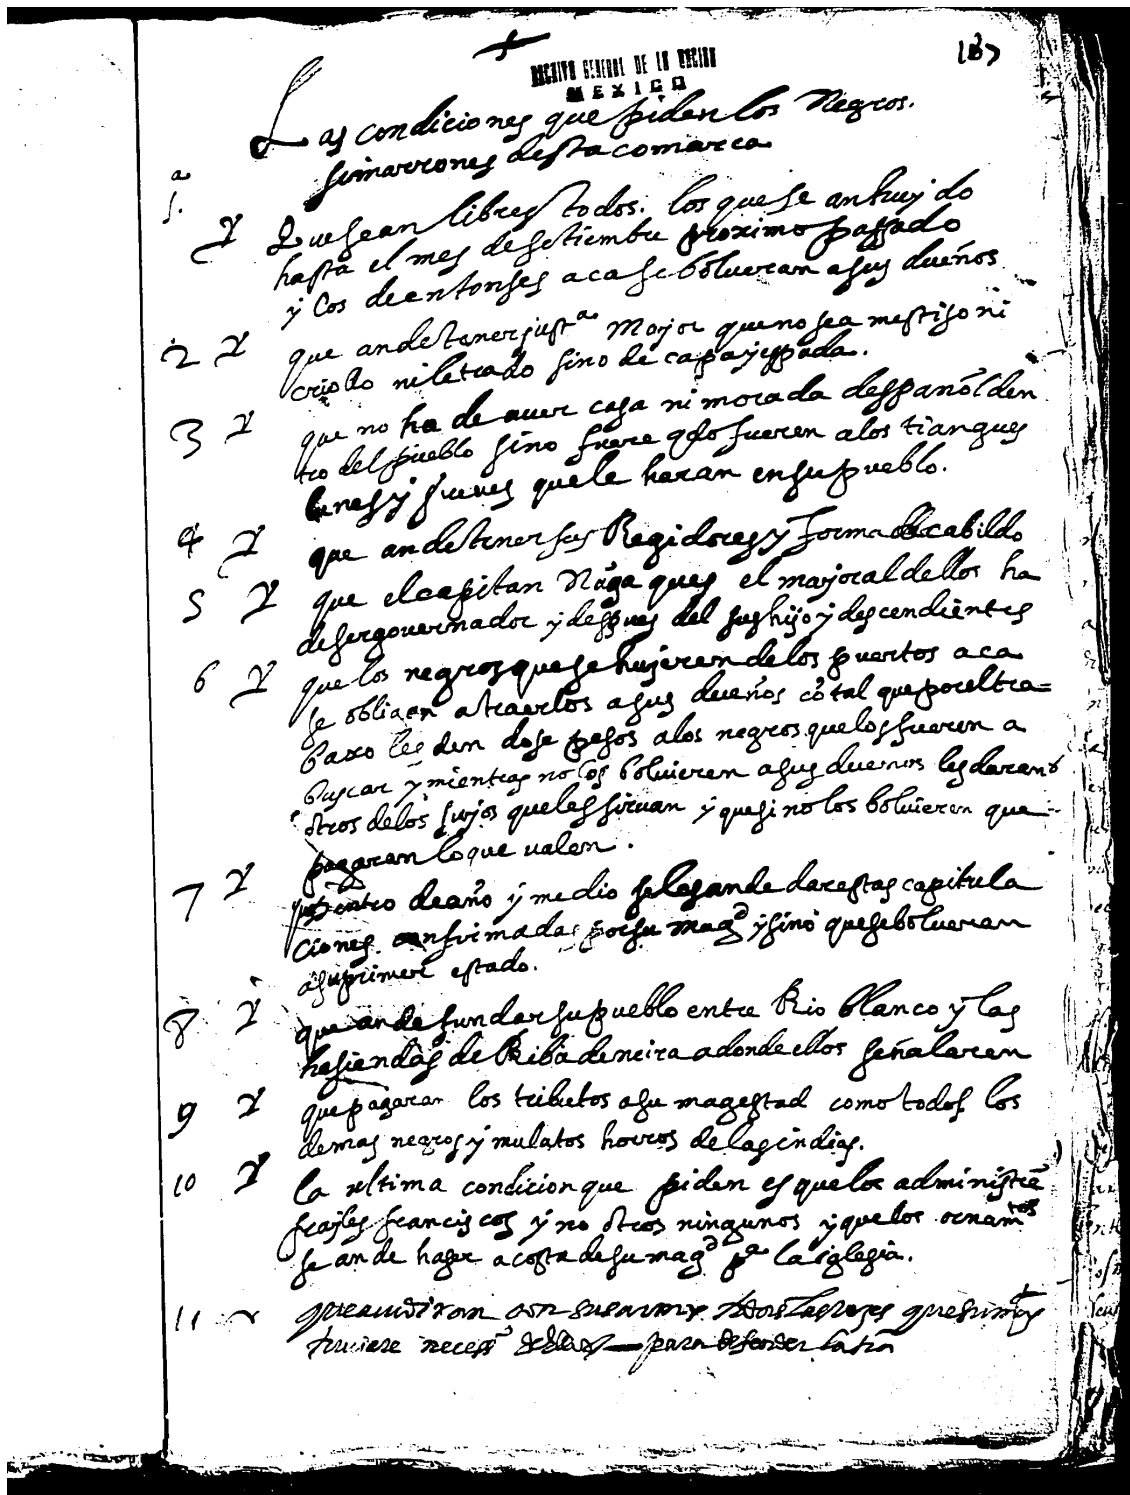 187
ARCHIVO GENERAL DE LA NACION
MEXICO
Las condiciones que piden los Negros.
simarrones desta comarca
1. Que sean libres todos. los que se an huydo
hasta el mes de setiembre proximo passado
y los de entonses aca se bolueran a sus dueños
2 que an de tener just.a Mayor que no sea mestiso ni
criollo ni letrado sino de capa y espada.
3 que no ha de auer casa ni morada despañol den
tro del pueblo sino fuere qdo fueren a los tiangues
lunes y jueues que le haran en su pueblo.
4 que an de tener sus Regidores y forma de cabildo
5 que el capitan Ñaga ques el mayoral dellos ha
de ser gouernador y despues del sus hijo y descendientes
6 que los negros que se hujeren de los puertos aca
se obligan a traerlos a sus dueños cō tal que por el tra=
baxo les den dose pesos a los negros que los fueren a
buscar y mientras no los boluieren a sus duenos les daran
otros de los sujos que les siruan y que si no los boluieren que
pagaran lo que valen.
7 dentro de año y medio se les an de dar estas capitula
ciones confirmadas por su magd y sino que se bolueran
a su primer estado.
8 que an de fundar su pueblo entre Rio blanco y las
hasiendas de Ribadeneira adonde ellos señalaren
9 que pagaran los tributos a su magestad como todos los
demas negros y mulatos horros de las indias.
10 la ultima condicion que piden es que los administrē
frayles franciscos y no otros ningunos y que los ornamtos
se an de haser a costa de su magd pa la iglesia.
11 que acudiran con sus armas todas las veses que su magt
tuuiere necess para defender la tra